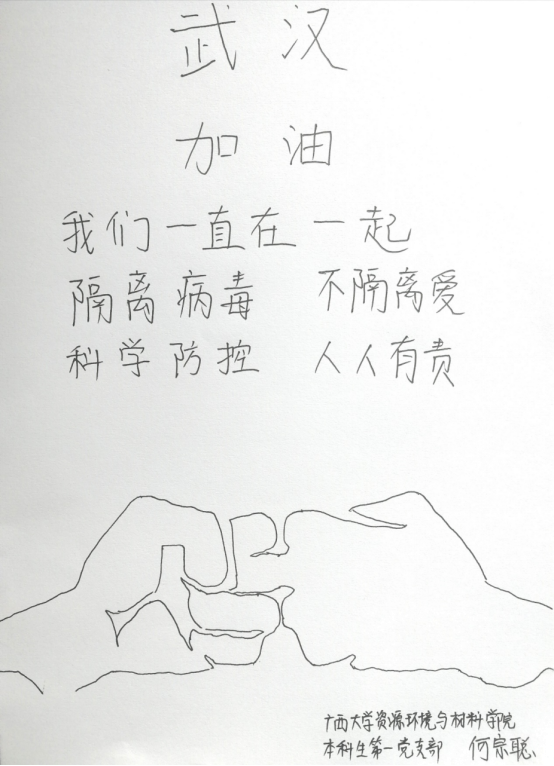 武汉
加油
我们一直在一起
隔离病毒 不隔离爱
科学防控 人人有责
广西大学资源环境与材料学院
本科生第一党支部 何宗聪